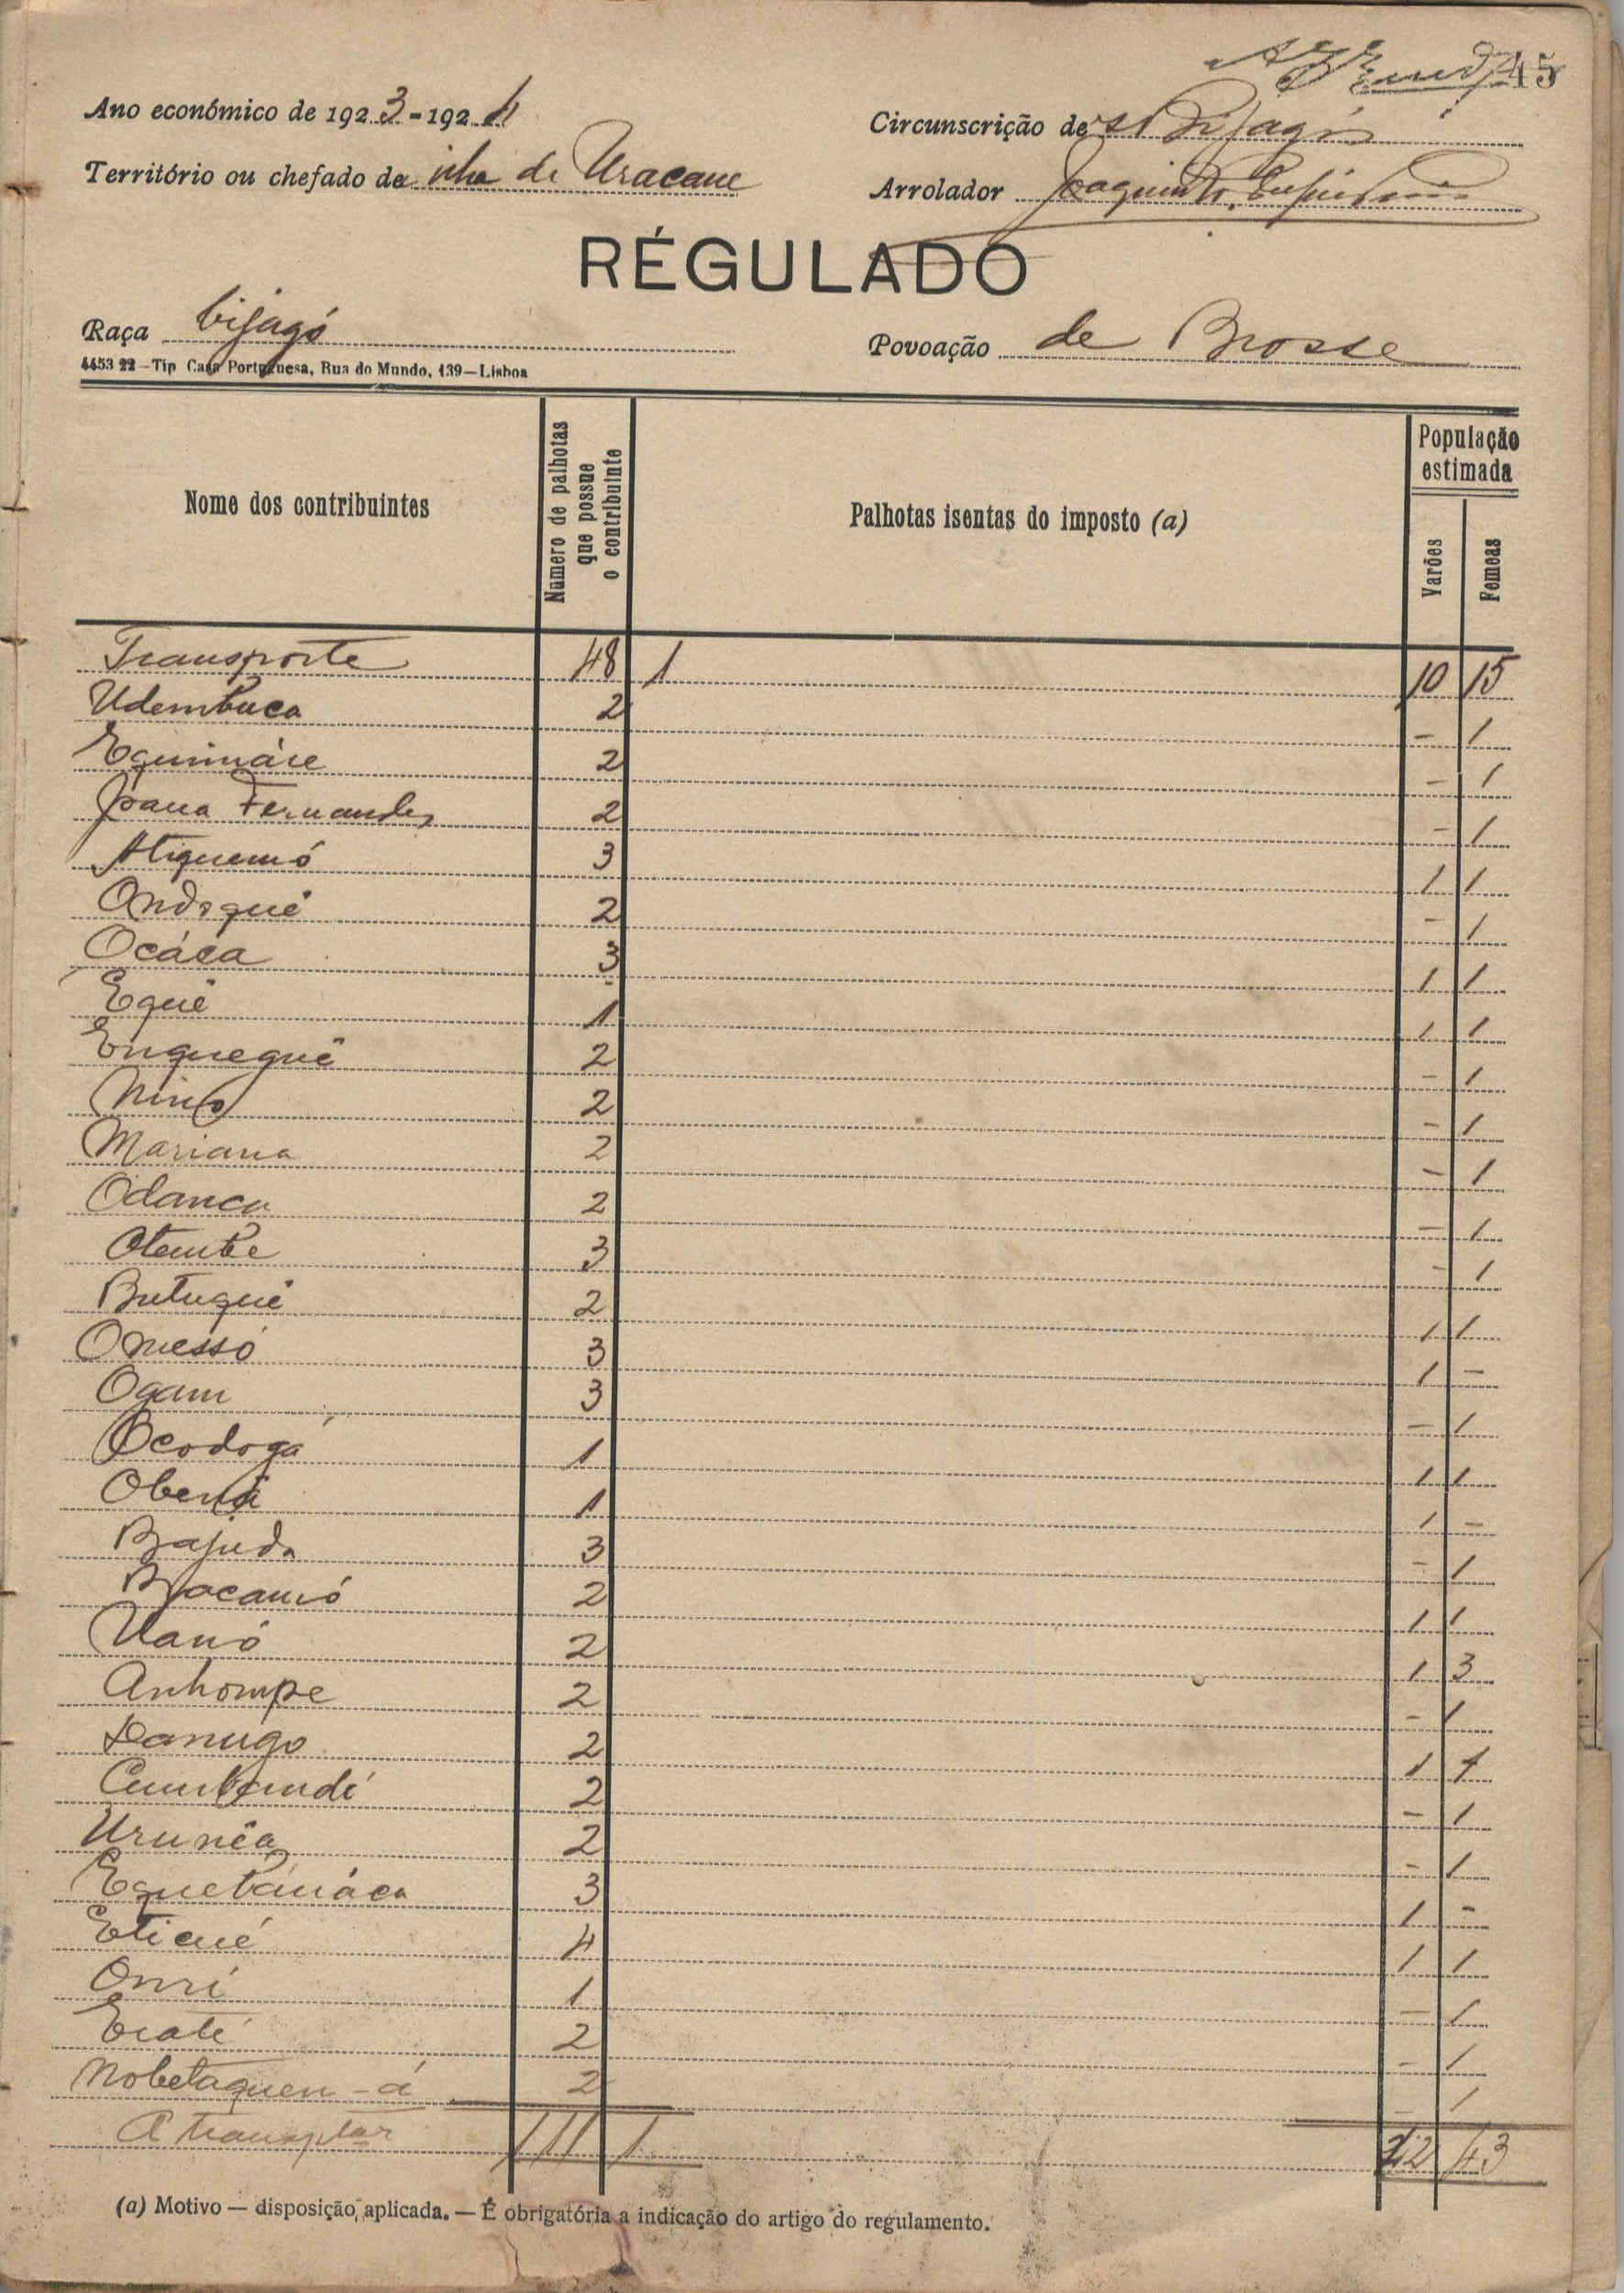 45
Ano económico de 1923-1924
Circunscrição dos Bijagós
Território ou chefado da ilha de Uracane
Arrolador Joaquim
RÉGULADO
Raça bijagó
Povoação de Brosse
4453 22 - Tip Casa Portuguesa, Rua do Mundo, 139—Lisboa
Nome dos contribuintes
Número de palhotas que possue o contribuinte
Palhotas isentas do imposto (a)
População estimada
Varões
Femeas
Transporte 48 1 10 15
Udembuca 2 - 1
Equimáre 2 - 1
Joana Fernandes 2 - 1
Atiquemó 3 1 1
Ondoquê 2 - 1
Ocáca 3 1 1
Equê 1 1 1
Enquequê 2 - 1
Nino 2 - 1
Mariana 2 - 1
Odanca 2 - 1
Otembe 3 - 1
Butuquê 2 1 1
Onessó 3 1 -
Ogam 3 - 1
Ocodogá 1 1 1
Obená 1 1 -
Bajuda 3 - 1
Bocamó 2 1 1
Uanó 2 1 3
Anhompe 2 - 1
Danugo 2 1 1
Cumbamdé 2 - 1
Urunêa 2 - 1
Equebanáca 3 1 -
Eticué 4 1 1
Onri 1 - 1
Ecaté 2 - 1
Nobetaquen-á 2 - 1
A transptar 111 1 22 43
(a) Motivo — disposição aplicada. — É obrigatória a indicação do artigo do regulamento.